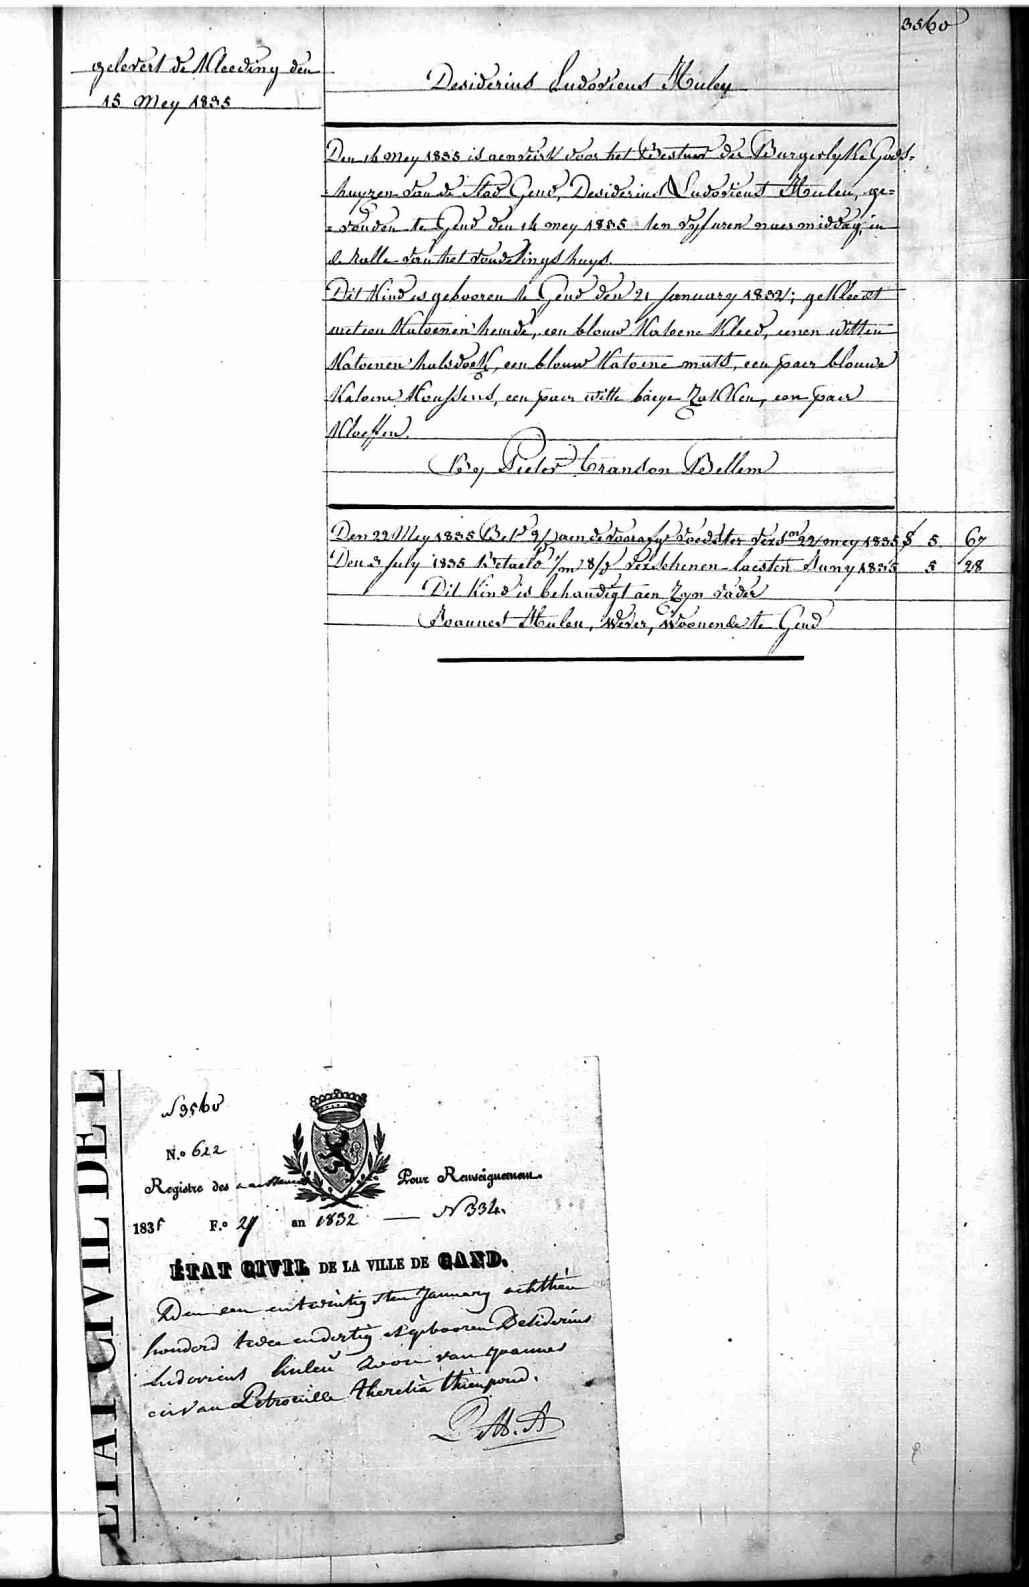 3560
gelevert de Kleeding den
15 Mey 1835
Desiderius Ludovicus Huleu
Den 14 mey 1835 is aenveird voor het Bestuer der Burgerlyke Gods-
huyzen van de Stad Gend, Desiderius Ludovicus Huleu, ge=
=vonden te Gend den 14 mey 1835 ten vyf uren naermiddag, in
de rolle van het vondelingshuys.
Dit Kind is gebooren te Gend den 21 January 1832; gekleed
met een Katoenen hemde, een blouw Katoene Kleed, eenen witten
Katoenen halsdoek, een blouw Katoene muts, een paer blouwe
Katoene Koussens, een paer witte baeye Zokken, een paer
Kloeffen.
By Pieter Cranson Bellem
Den 22 Mey 1835 Bet. aen de voorgaende voedster 22 mey 1835 5 67
Den 3 July 1835 Betaeld verschenen laesten Juny 1835 5 28
Dit Kind is behandigt aen Zyn vader
Joannes Huleu, Wever, Woonende te Gend
ÉTAT CIVIL DE L
N 3560
N.o 622
Registre des Pour Renseignemen.
183 F.o 29 an 1832 — N 334.
ÉTAT CIVIL DE LA VILLE DE GAND.
Den een entwintigsten January achthien
honderd twee endertig is gebooren Desiderius
Ludovicus huleu zoon van joannes
en van Petronille theresia thienpond.